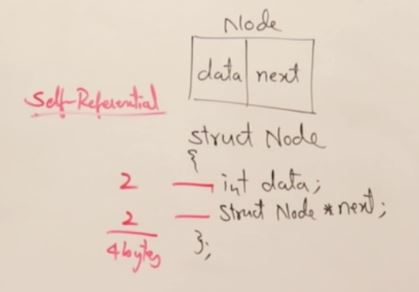 Node
data next
Self-Referential
struct Node
{
2 int data;
2 struct Node *next;
4bytes };